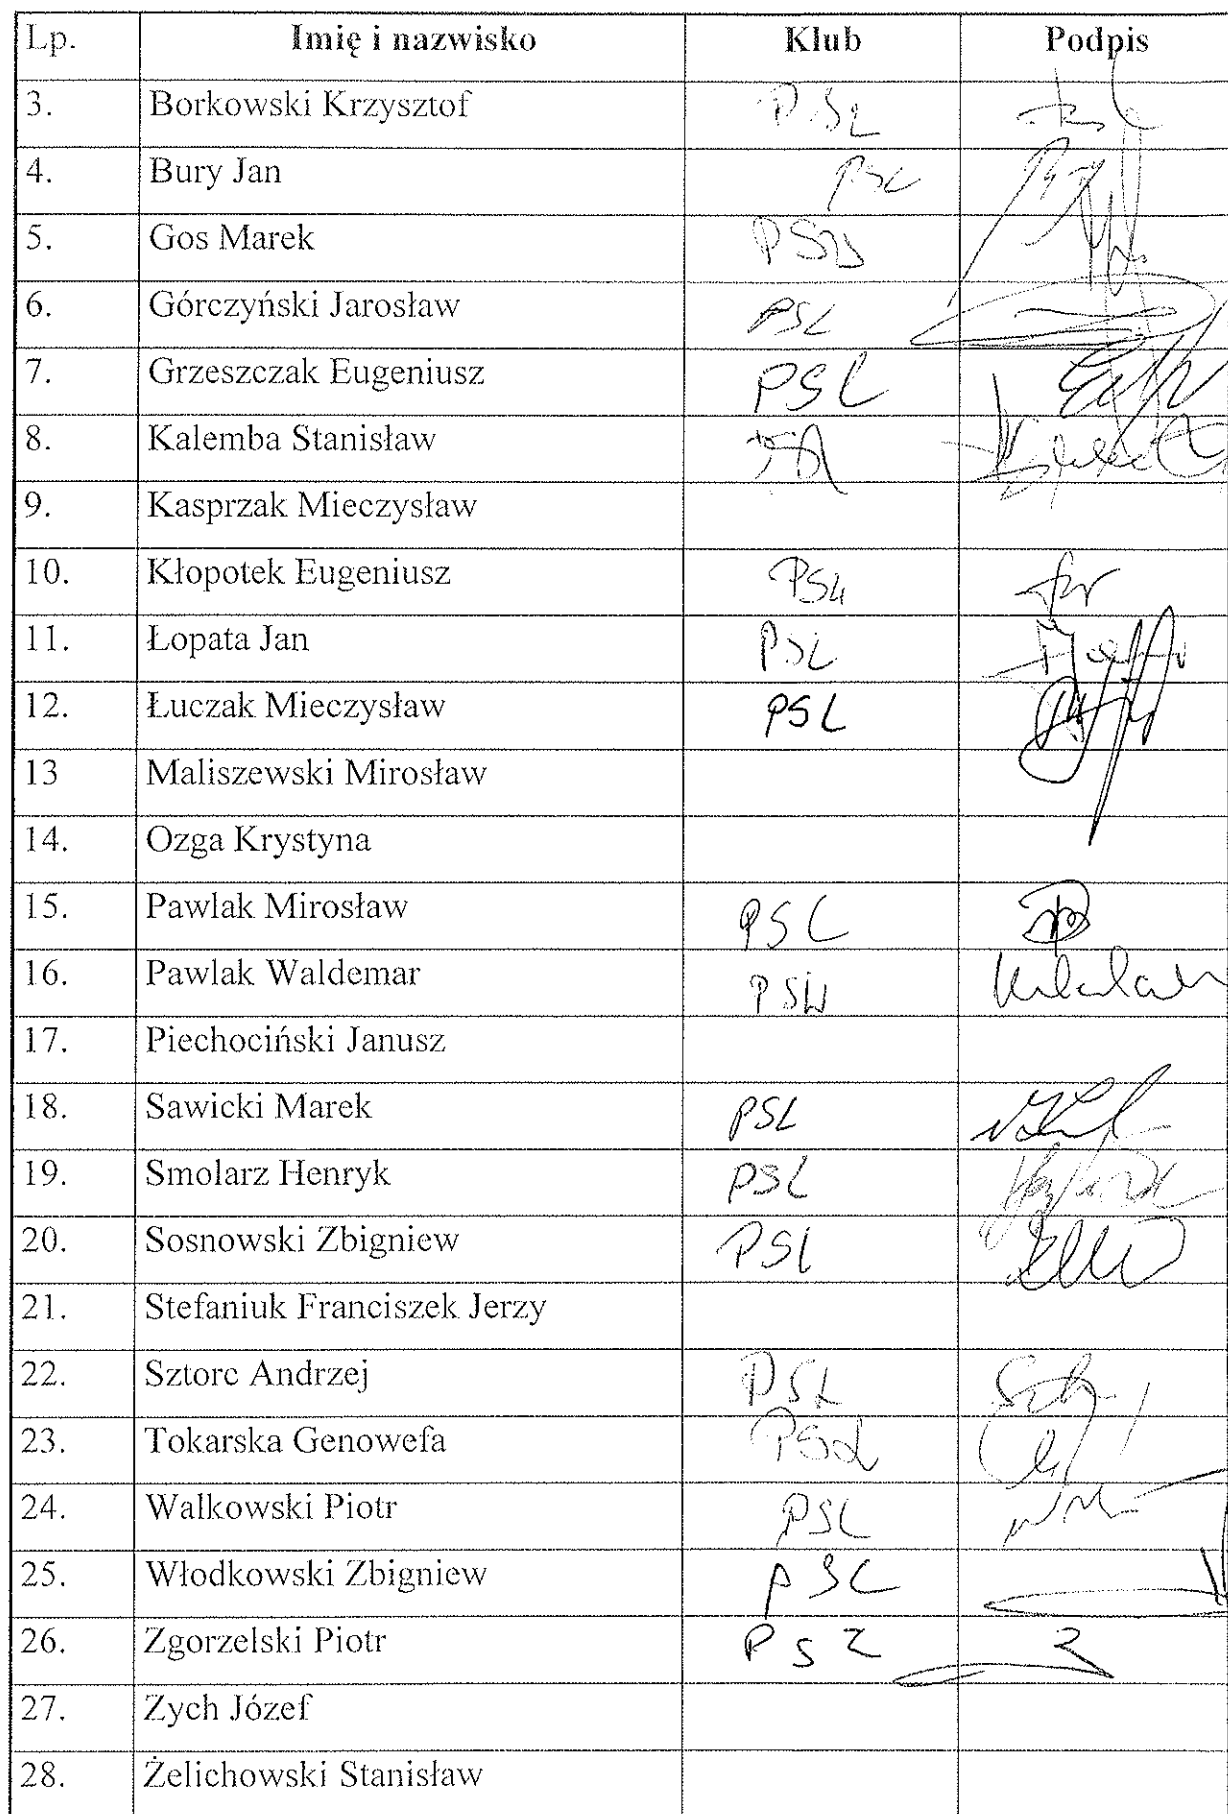 Lp. Imię i nazwisko Klub Podpis
3. Borkowski Krzysztof PSL
4. Bury Jan PSL
5. Gos Marek PSL
6. Górczyński Jarosław PSL
7. Grzeszczak Eugeniusz PSL
8. Kalemba Stanisław
9. Kasprzak Mieczysław
10. Kłopotek Eugeniusz PSL
11. Łopata Jan PSL
12. Łuczak Mieczysław PSL
13 Maliszewski Mirosław
14. Ozga Krystyna
15. Pawlak Mirosław PSL
16. Pawlak Waldemar PSL
17. Piechociński Janusz
18. Sawicki Marek PSL
19. Smolarz Henryk PSL
20. Sosnowski Zbigniew PSL
21. Stefaniuk Franciszek Jerzy
22. Sztorc Andrzej PSL
23. Tokarska Genowefa PSL
24. Walkowski Piotr PSL
25. Włodkowski Zbigniew PSL
26. Zgorzelski Piotr PSL
27. Zych Józef
28. Żelichowski Stanisław